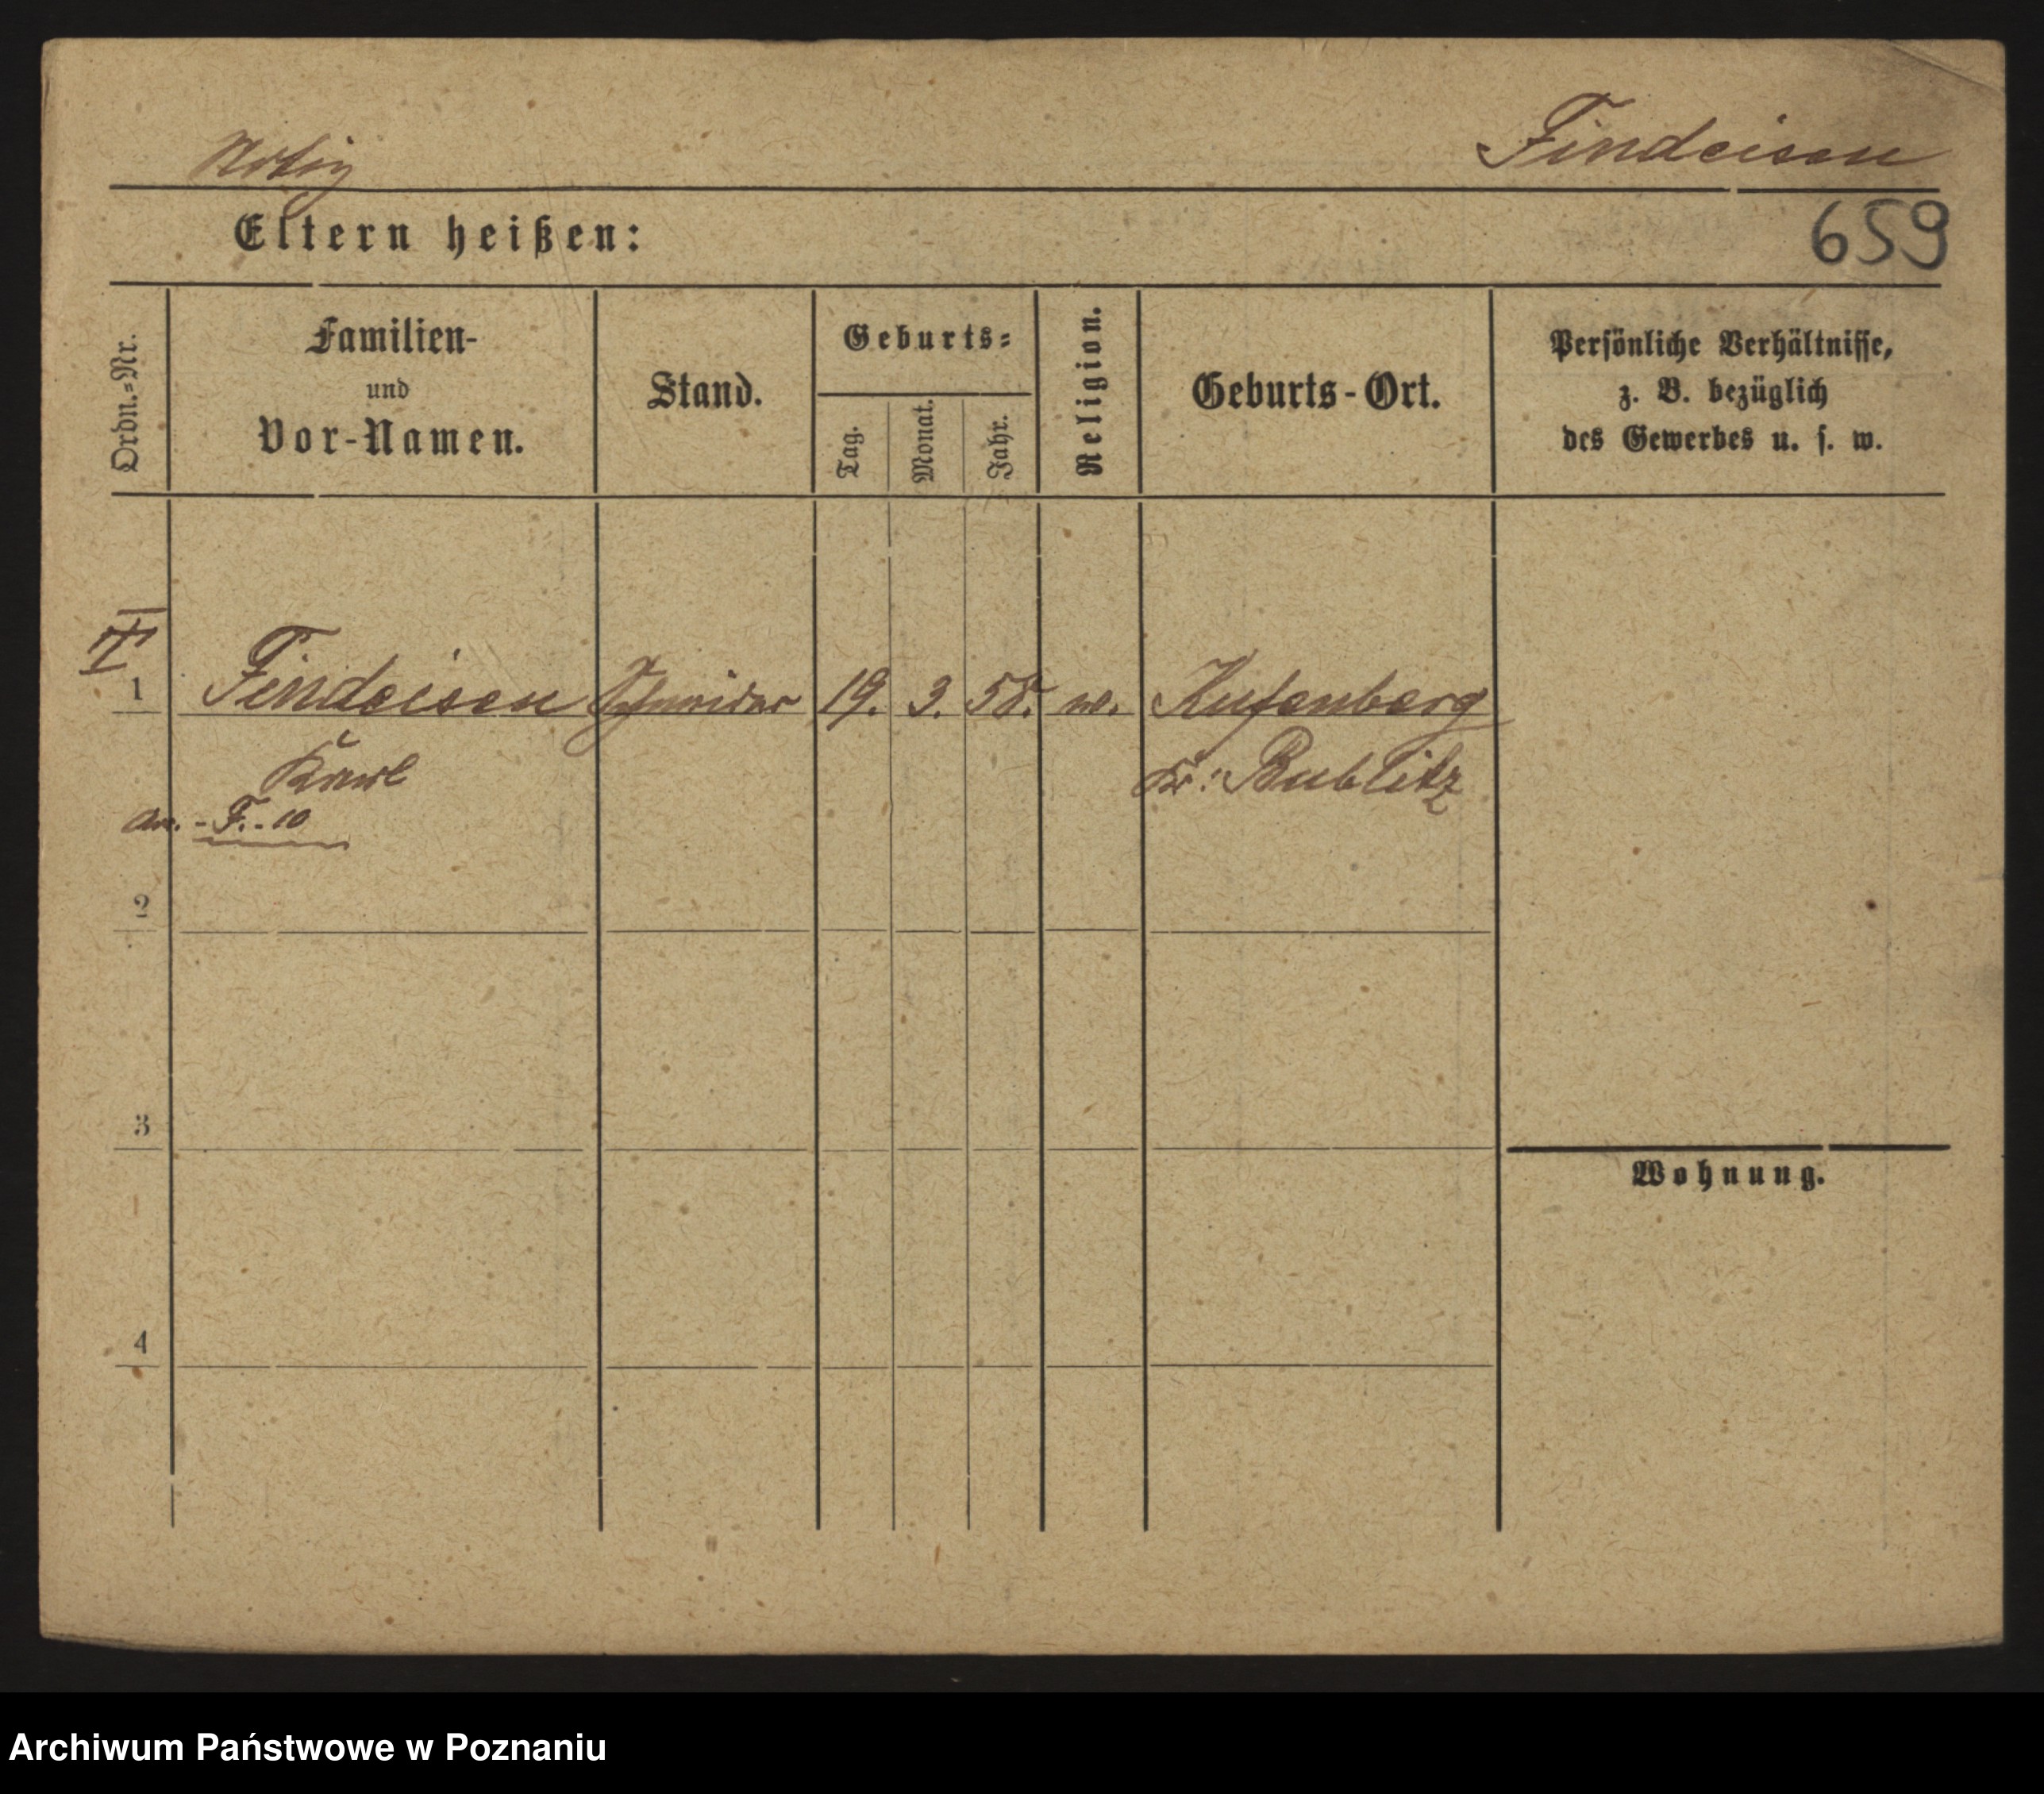 Notiz
Findeisen
Eltern heißen:
659
Ordn.-Nr.
Familien-
und
Vor-Namen.
Stand.
Geburts-
Tag.
Monat.
Jahr.
Religion.
Geburts-Ort.
Persönliche Verhältnisse,
z. B. bezüglich
des Gewerbes u. s. w.
1 Findeisen Schneider 19. 3. 58. Kufenberg
Karl Kr: Bublitz
F. - 10
2
3
Wohnung.
4
Archiwum Państwowe w Poznaniu